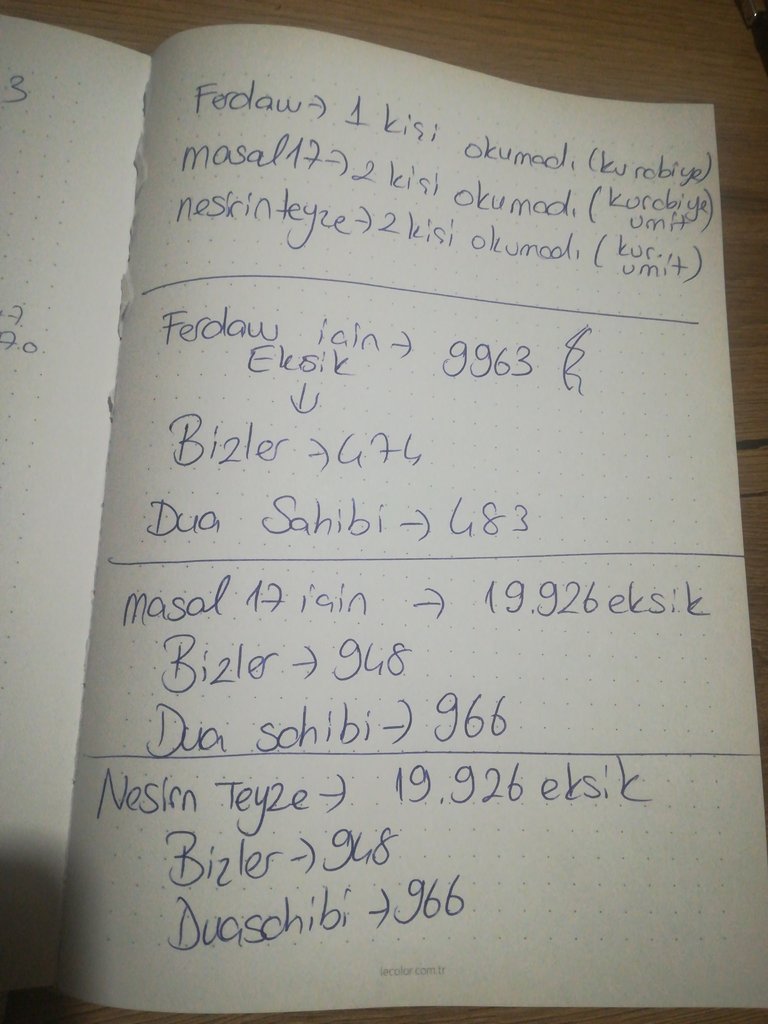 3
Ferdaw → 1 kişi okumadı (kurabiye)
masal17 → 2 kişi okumadı (kurabiye
umit)
nesrinteyze → 2 kişi okumadı (kur..
umit)
Ferdaw için → 9963
Eksik
↓
Bizler → 474
Dua Sahibi → 483
masal 17 için → 19.926 eksik
Bizler → 948
Dua sahibi → 966
Nesrn Teyze → 19.926 eksik
Bizler → 948
Duasahibi → 966
lecolor.com.tr